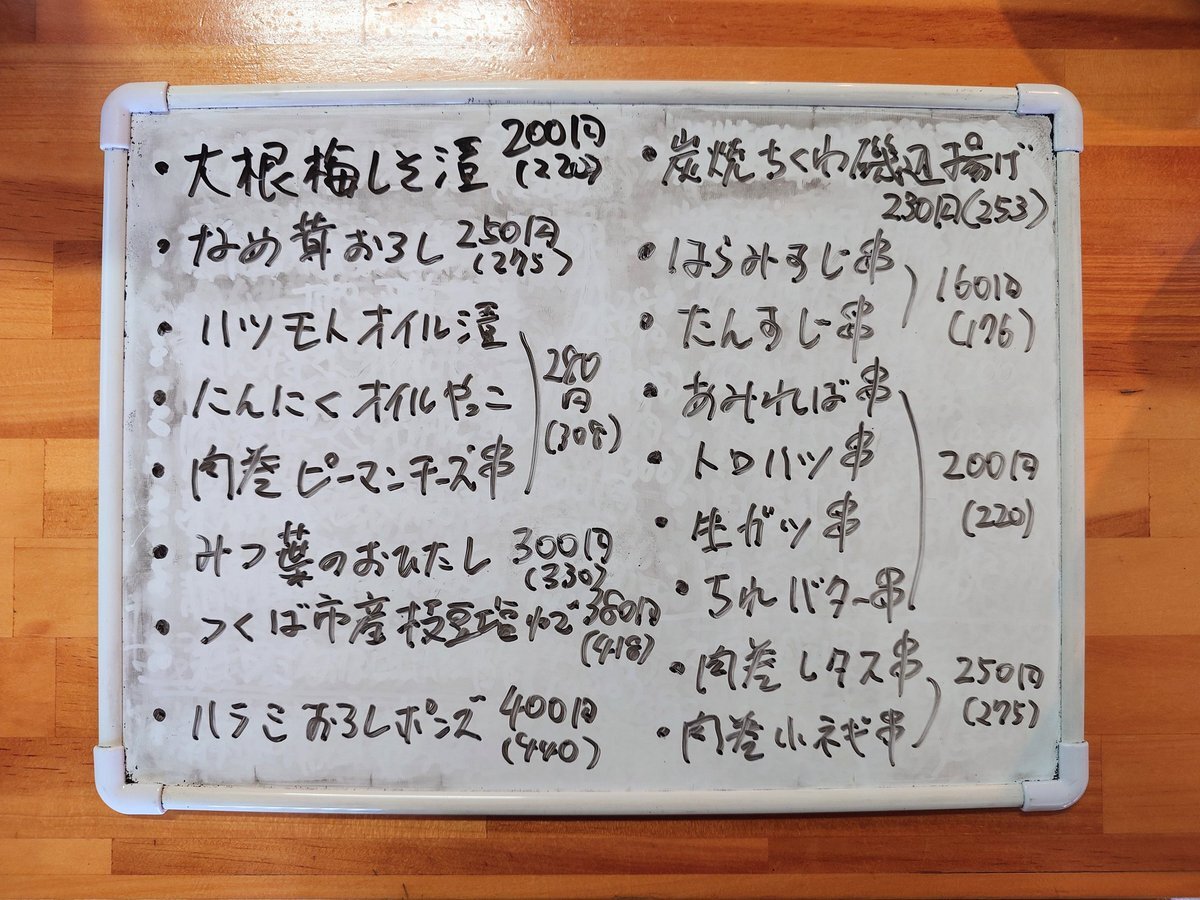 ・大根梅しそ漬 200円
(220)
・なめ茸おろし 250円
(275)
・ハツモトオイル漬
・にんにくオイルやっこ
・肉巻ピーマンチーズ串
280
円
(308)
・みつ葉のおひたし 300円
(330)
・つくば市産枝豆塩ゆで 380円
(418)
・ハラミおろしポンズ 400円
(440)
・炭焼ちくわ磯辺揚げ
230円(253)
・はらみすじ串
・たんすじ串
160円
(176)
・あみればー串
・トロハツ串
・生ガツ串
・ちれバター串
200円
(220)
・肉巻レタス串
・肉巻小ネギ串
250円
(275)